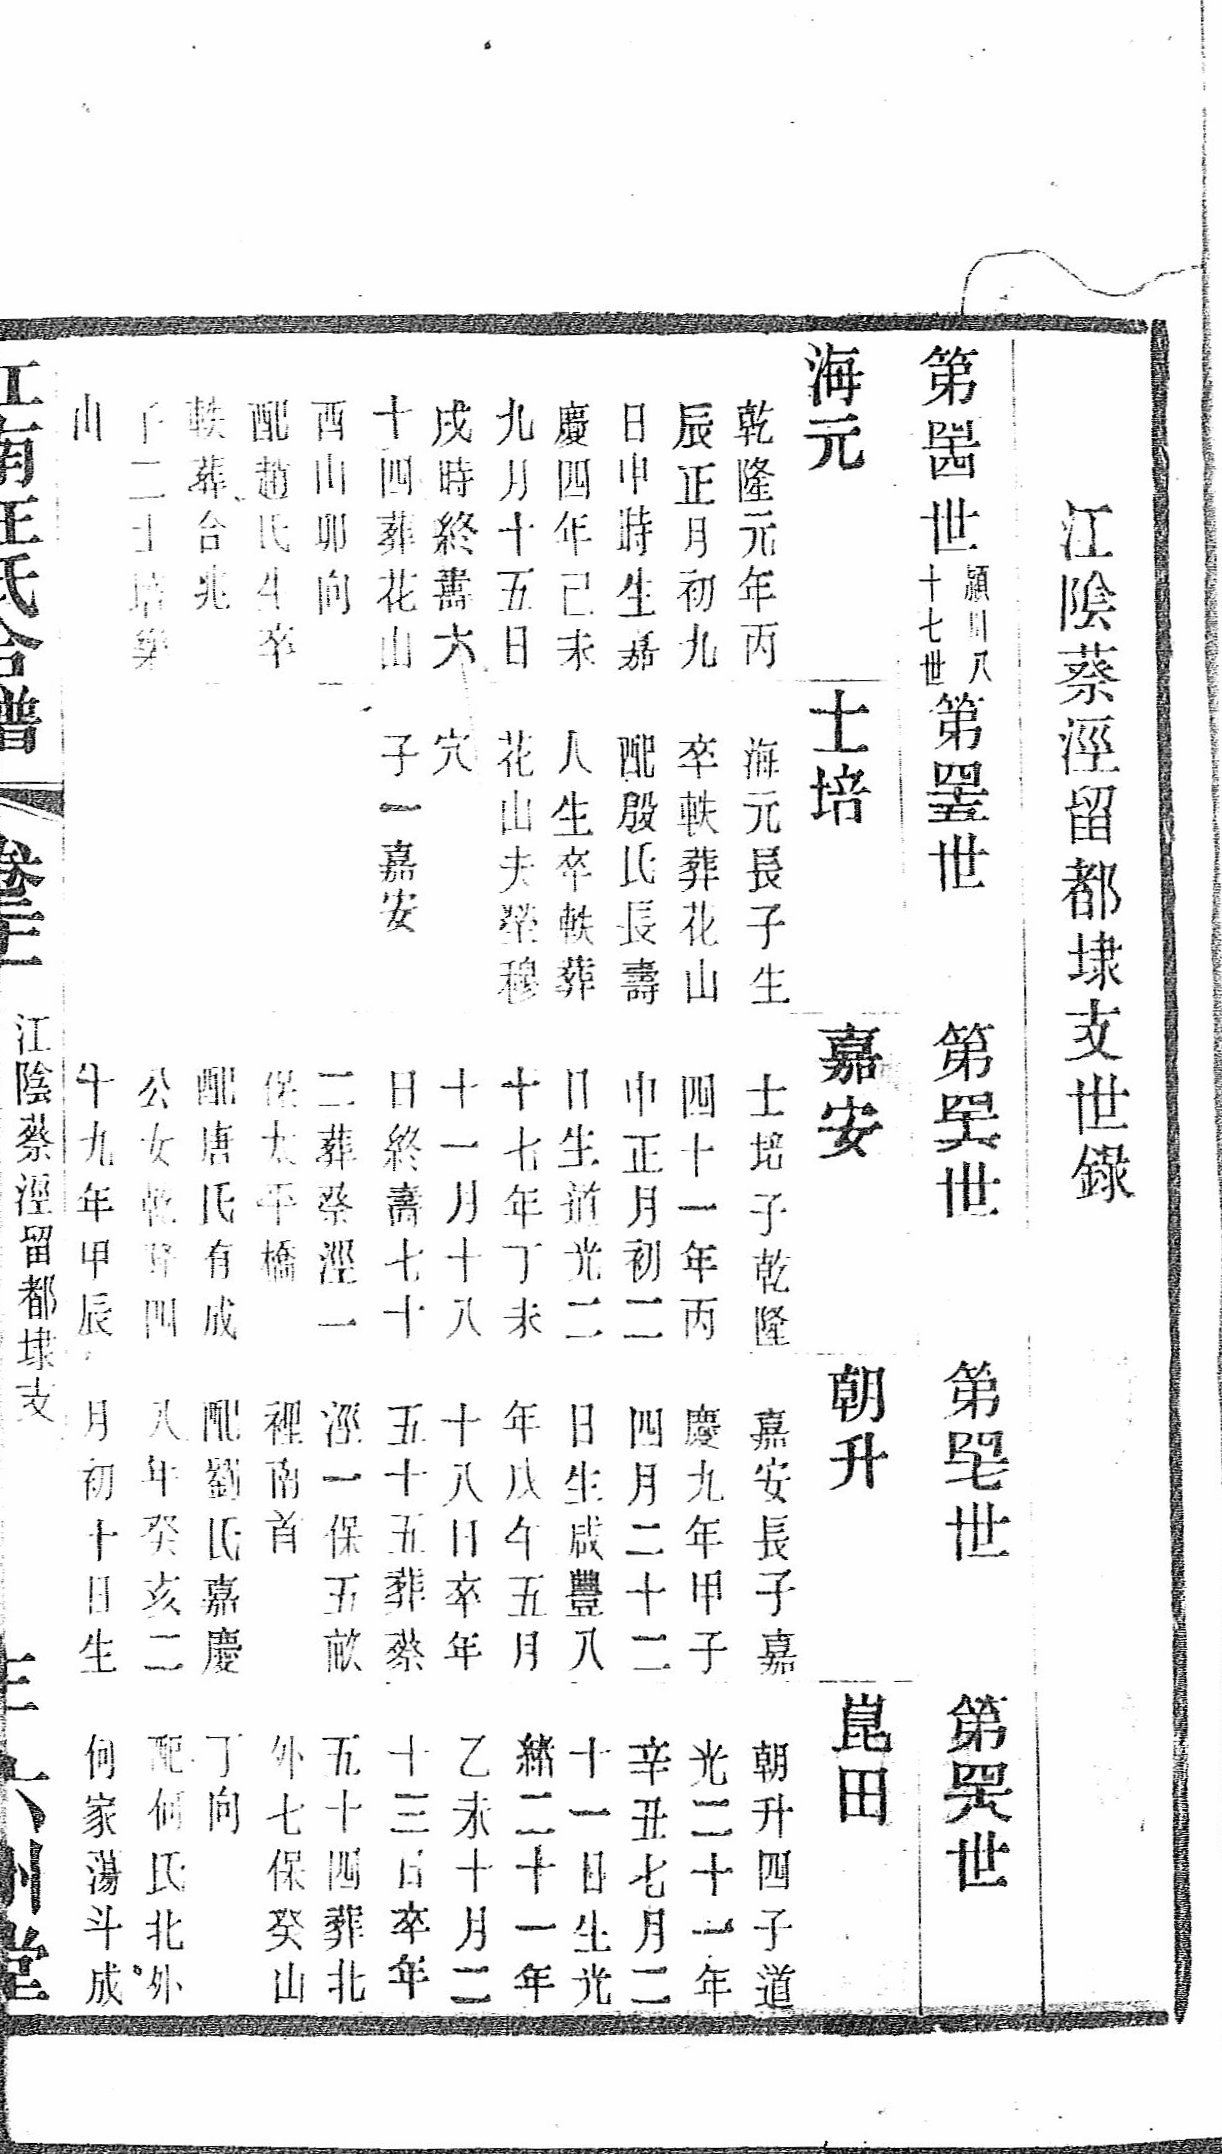 江陰蔡涇留都埭支世錄
第卌四世
潁川八
十七世
海元
乾隆元年丙
辰正月初九
日申時生嘉
慶四年己未
九月十五日
戌時終壽六
十四葬花山
酉山卯向
配趙氏生卒
軼葬合兆
子二士培樂
山
第卌五世
士培
海元長子生
卒軼葬花山
配殷氏長壽
人生卒軼葬
花山夫塋穆
穴
子一嘉安
第卌六世
嘉安
士培子乾隆
四十一年丙
申正月初二
日生道光二
十七年丁未
十一月十八
日終壽七十
二葬蔡涇一
保太平橋
配唐氏有成
公女乾隆四
十九年甲辰
第卌七世
朝升
嘉安長子嘉
慶九年甲子
四月二十二
日生咸豐八
年戊午五月
十八日卒年
五十五葬蔡
涇一保五畝
裡南首
配劉氏嘉慶
八年癸亥二
月初十日生
第卌八世
崑田
朝升四子道
光二十一年
辛丑七月二
十一日生光
緒二十一年
乙未十月二
十三日卒年
五十四葬北
外七保癸山
丁向
配何氏北外
何家蕩斗成
江南王氏合譜
卷三
江陰蔡涇留都埭支
三六州堂